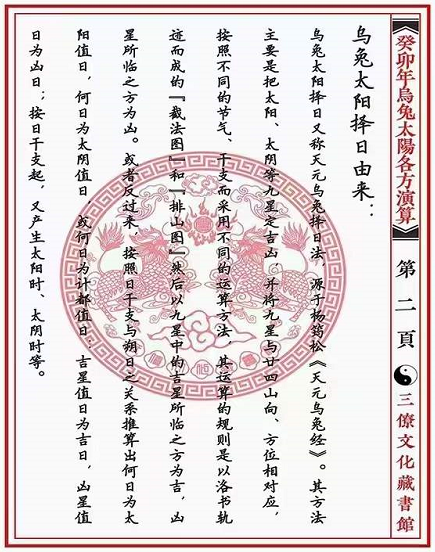 《癸卯年烏兔太陽各方演算》
第二頁
三僚文化藏書館
乌兔太阳择日由来：
乌兔太阳择日又称天元乌兔择日法，源于杨筠松《天元乌兔经》。其方法
主要是把太阳、太阴等九星定吉凶，并将九星与廿四山向、方位相对应，
按照不同的节气、干支而采用不同的运算方法，其运算的规则是以洛书轨
迹而成的『截法图』和『排山图』然后以九星中的吉星所临之方为吉，凶
星所临之方为凶。或者反过来，按照日干支与朔日之关系推算出何日为太
阳值日，何日为太阴值日，或何日为计都值日；吉星值日为吉日，凶星值
日为凶日；按日干支起，又产生太阳时、太阴时等。